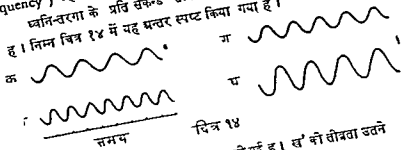 quency
ध्वनि-तरंगों के प्रति सेकन्ड
है । निम्न चित्र १४ में यह अन्तर स्पष्ट किया गया है ।
क
ग
घ
समय
चित्र १४
है । ख' की तीव्रता उतने